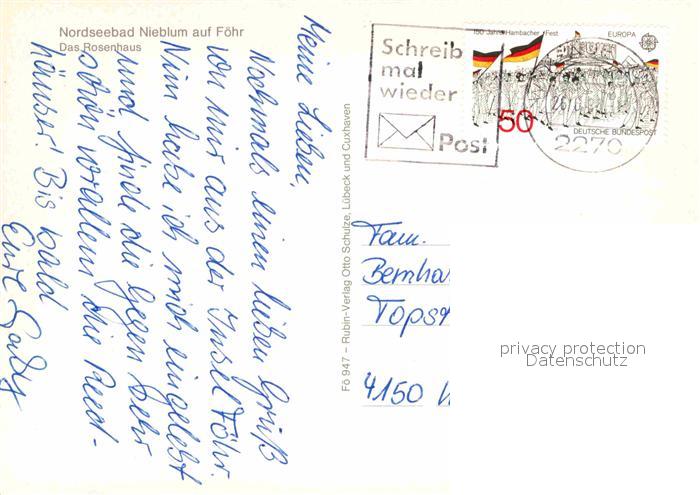 Nordseebad Nieblum auf Föhr
Das Rosenhaus
Meine Lieben,
Nochmals einen lieben Gruß
von mir aus der Insel Föhr.
Nun habe ich mich eingelebt
und finde die Gegend sehr
schön vorallem die Reed-
häuser! Bis bald
Eure Gaby
Fö 947 – Rubin-Verlag Otto Schulze, Lübeck und Cuxhaven
Schreib
mal
wieder
Post
150 Jahre Hambacher Fest
EUROPA
50
DEUTSCHE BUNDESPOST
2270
Fam.
Bernha
Topst
4150
privacy protection
Datenschutz